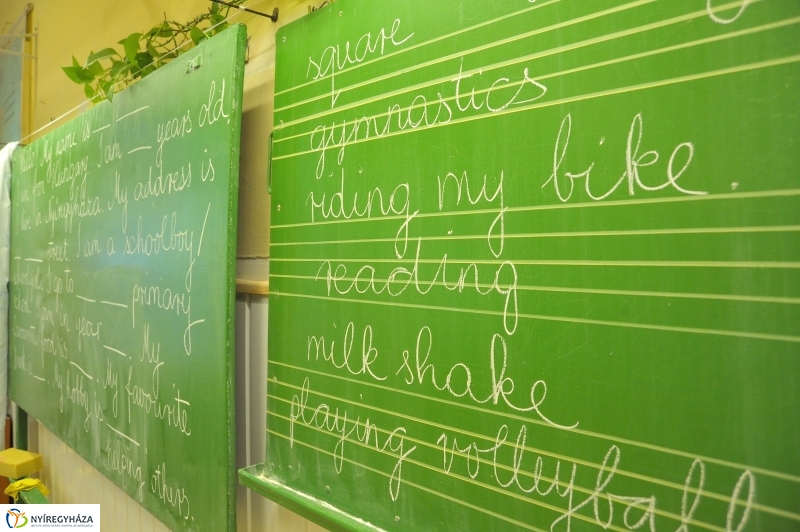 Hello! My name is __ __
I am from Hungary. I am __ years old
I live in Nyíregyháza. My address is
__ street. I am a schoolboy/
schoolgirl. I go to __ __ primary
school. I am in year __. My
favourite food is __. My favourite
__. My hobby is helping others.
square
gymnastics
riding my bike.
reading
milk shake
playing volleyball
NYÍREGYHÁZA